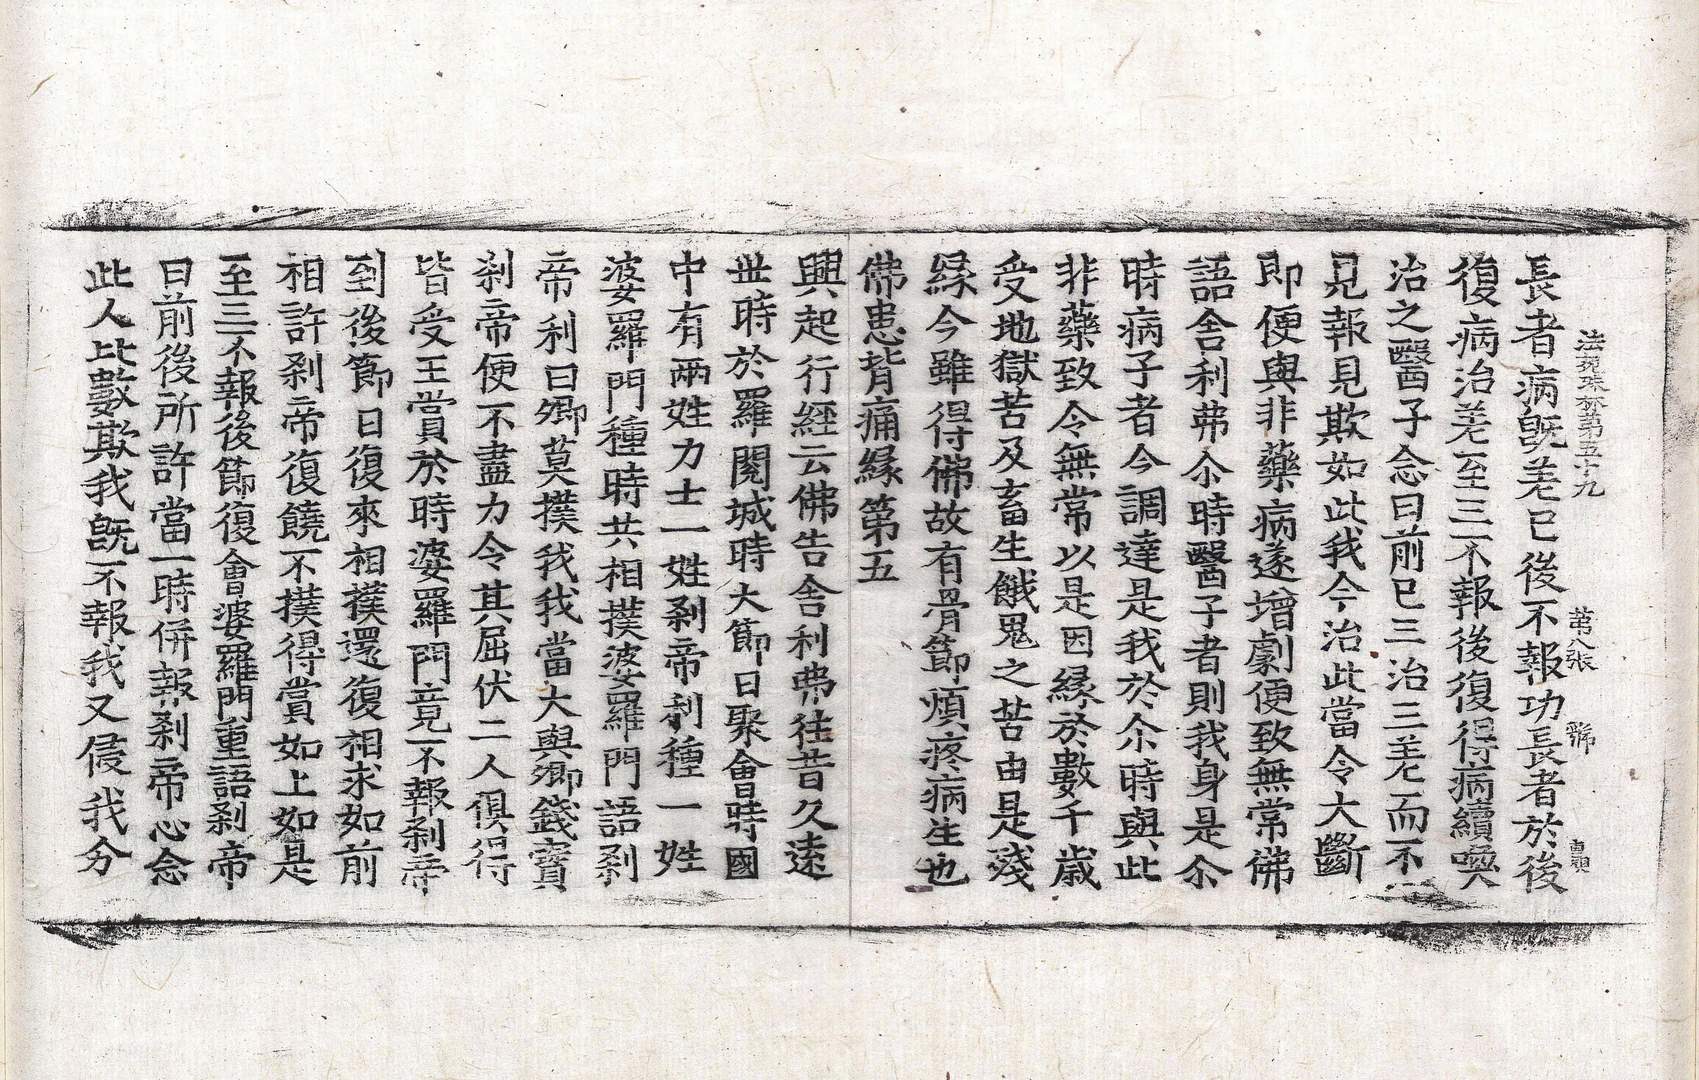 法苑珠林第五十九　第八張　號
長者病旣差已後不報功長者於後
復病治差至三不報後復得病續喚
治之醫子念曰前已三治三差而不
見報見欺如此我今治此當令大斷
即便與非藥病遂增劇便致無常佛
語舍利弗尒時醫子者則我身是尒
時病子者今調達是我於尒時與此
非藥致令無常以是因緣於數千歲
受地獄苦及畜生餓鬼之苦由是殘
緣今雖得佛故有骨節煩疼病生也
佛患背痛緣第五
興起行經云佛告舍利弗往昔久遠
世時於羅閱城時大節日聚會時國
中有兩姓力士一姓刹帝利種一姓
婆羅門種時共相撲婆羅門語刹
帝利曰卿莫撲我我當大與卿錢寶
刹帝便不盡力令其屈伏二人俱得
皆受王賞於時婆羅門竟不報刹帝
到後節日復來相撲還復相求如前
相許刹帝復饒不撲得賞如上如是
至三不報後節復會婆羅門重語刹帝
曰前後所許當一時併報刹帝心念
此人比數欺我旣不報我又侵我分